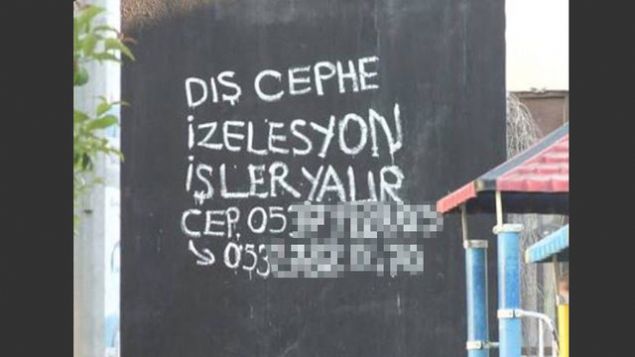 DIŞ CEPHE
İZELESYON
İŞLER YALIR
CEP. 053
053